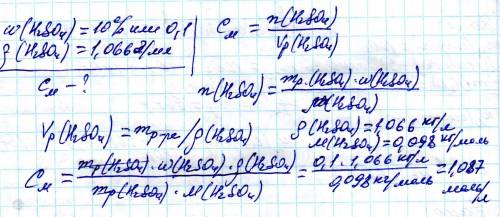 w(H₂SO₄) = 10% или 0,1
ρ(H₂SO₄) = 1,066 г/мл
Cм – ?
Cм = n(H₂SO₄) / Vр(H₂SO₄)
n(H₂SO₄) = mр(H₂SO₄)·w(H₂SO₄) / M(H₂SO₄)
Vр(H₂SO₄) = mр-ра / ρ(H₂SO₄)
ρ(H₂SO₄) = 1,066 кг/л
M(H₂SO₄) = 0,098 кг/моль
Cм = mр(H₂SO₄)·w(H₂SO₄)·ρ(H₂SO₄) / mр(H₂SO₄)·M(H₂SO₄) = 0,1·1,066 кг/л / 0,098 кг/моль = 1,087 моль/л